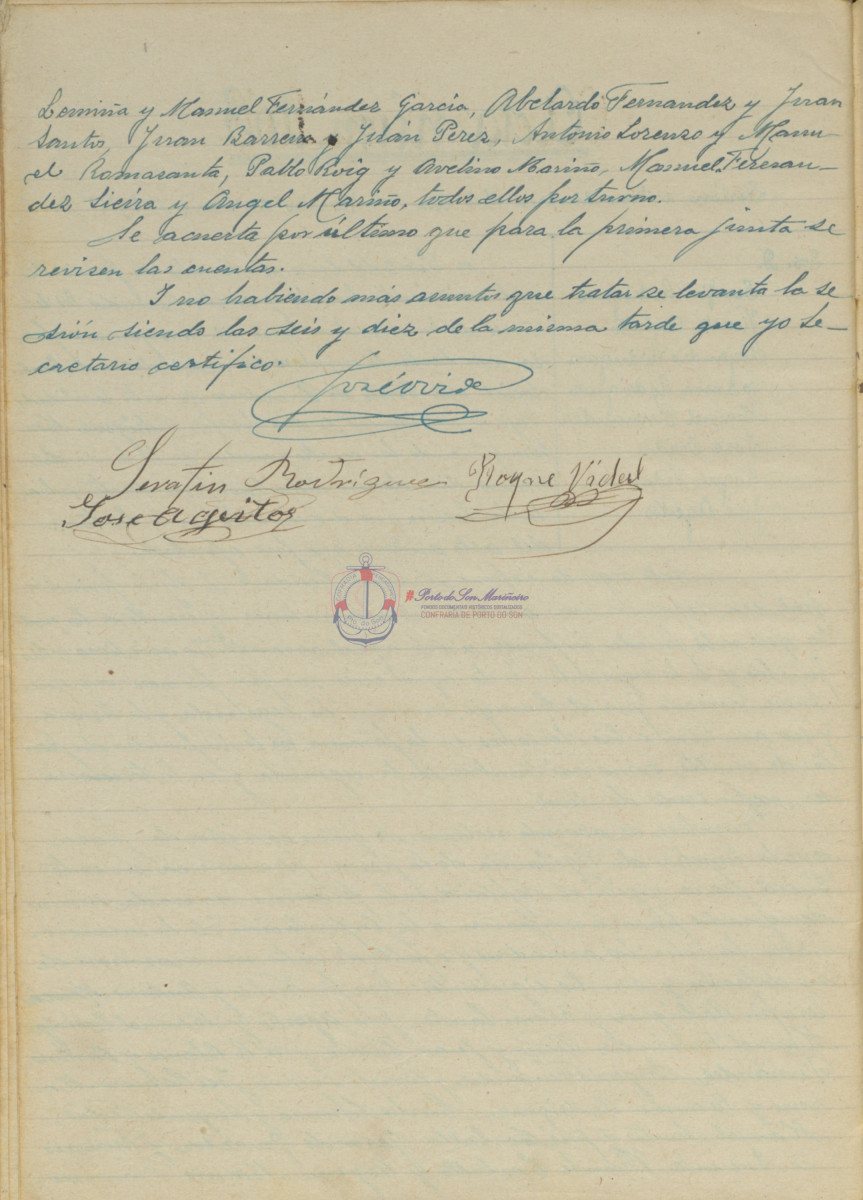 Lemiña y Manuel Fernández García, Abelardo Fernandez y Juan
Santos, Juan Barreiro y Juán Perez, Antonio Lorenzo y Manu-
el Romasanta, Pablo Roig y Avelino Mariño, Manuel Fernan-
dez Sieira y Angel Mariño, todos ellos por turno.
Se acuerta por último que para la primera junta se
revisen las cuentas.
I no habiendo más asuntos que tratar se levanta la se
sión siendo las seis y diez de la misma tarde que yo se-
cretario certifico.
José
Serafin Rodríguez Roque Vidal
Jose Ageitos
#Porto do Son Mariñeiro
FONDOS DOCUMENTAIS HISTÓRICOS DIXITALIZADOS
CONFRARÍA DE PORTO DO SON